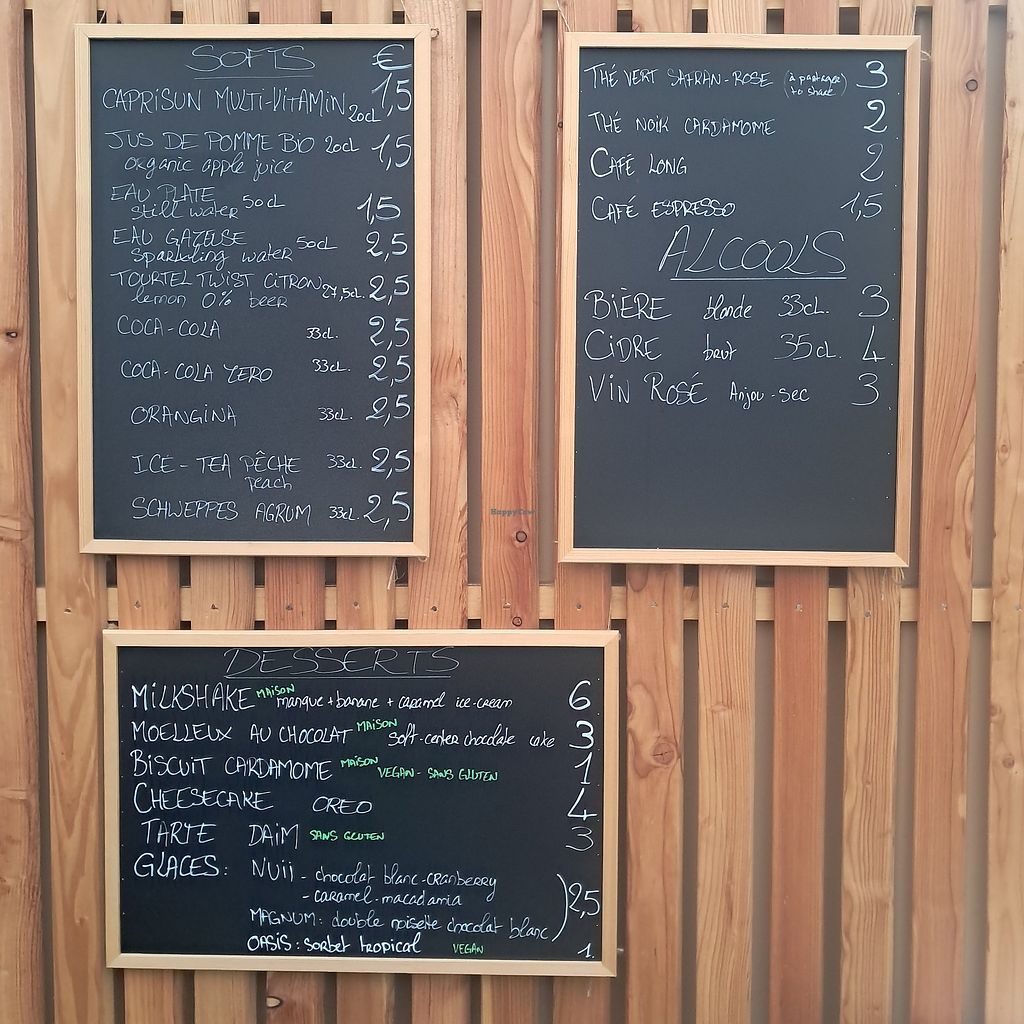 SOFTS €
CAPRISUN MULTI-VITAMIN 20cl 1,5
JUS DE POMME BIO 20cl 1,5
organic apple juice
EAU PLATE 50cl 1,5
still water
EAU GAZEUSE 50cL 2,5
sparkling water
TOURTEL TWIST CITRON 27,5cL 2,5
lemon 0% beer
COCA-COLA 33cL. 2,5
COCA-COLA ZERO 33cL 2,5
ORANGINA 33cL. 2,5
ICE-TEA PÊCHE 33cL. 2,5
peach
SCHWEPPES AGRUM 33cL. 2,5
THÉ VERT SAFRAN-ROSE (à partager) 3
(to share)
THÉ NOIR CARDAMOME 2
CAFÉ LONG 2
CAFÉ ESPRESSO 1,5
ALCOOLS
BIÈRE blonde 33cL. 3
CIDRE brut 35cL. 4
VIN ROSÉ Anjou-sec 3
HappyCow
DESSERTS
MILKSHAKE MAISON mangue + banane + caramel ice-cream 6
MOELLEUX AU CHOCOLAT MAISON Soft-center chocolate cake 3
BISCUIT CARDAMOME MAISON VEGAN - SANS GLUTEN 1
CHEESECAKE OREO 4
TARTE DAIM SANS GLUTEN 3
GLACES: NUII - chocolat blanc-cranberry
- caramel-macadamia
MAGNUM: double noisette chocolat blanc ) 2,5
OASIS: sorbet tropical VEGAN 1.